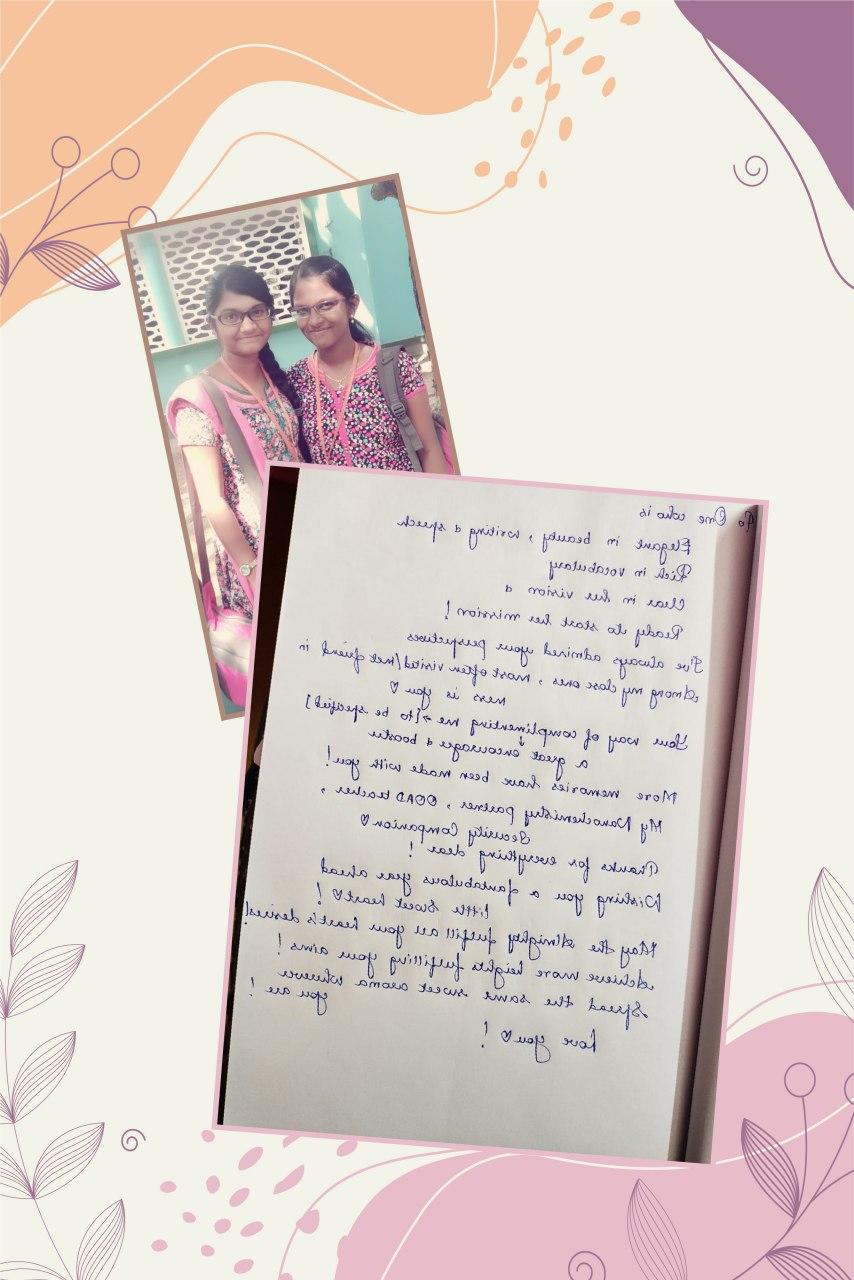 To One who is
Elegant in beauty, writing & speech
Rich in vocabulary
Clear in her vision &
Ready to start her mission!
I've always admired your perspectives
Among my close ones, most often visited/met friend in
ness is you ♡
Your way of complimenting me →[to be specified]
↓
a great encourager & booster
More memories have been made with you!
My Nanochemistry partner, OOAD teacher,
Security Companion ♡
Thanks for everything dear!
Wishing you a fantabulous year ahead
little sweet heart ♡!
May the Almighty fulfill all your heart's desires!
Achieve more heights fulfilling your aims!
Spread the same sweet aroma wherever
you are!
Love you ♡!